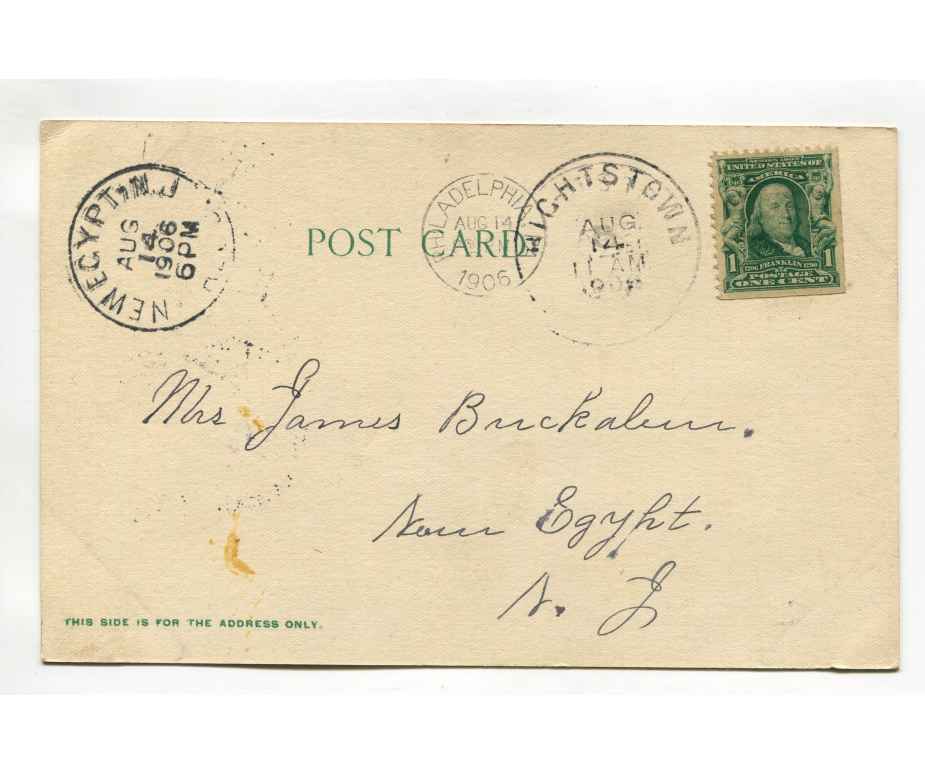 NEW EGYPT, N.J.
AUG
14
1906
6 PM
REC'D.
POST CARD
PHILADELPHIA
AUG 14
1906
HIGHTSTOWN
AUG
14
11 AM
1906
UNITED STATES OF
AMERICA
1 FRANKLIN 1
POSTAGE
ONE CENT
Mrs James Buckalew.
New Egypt.
N. J
THIS SIDE IS FOR THE ADDRESS ONLY.